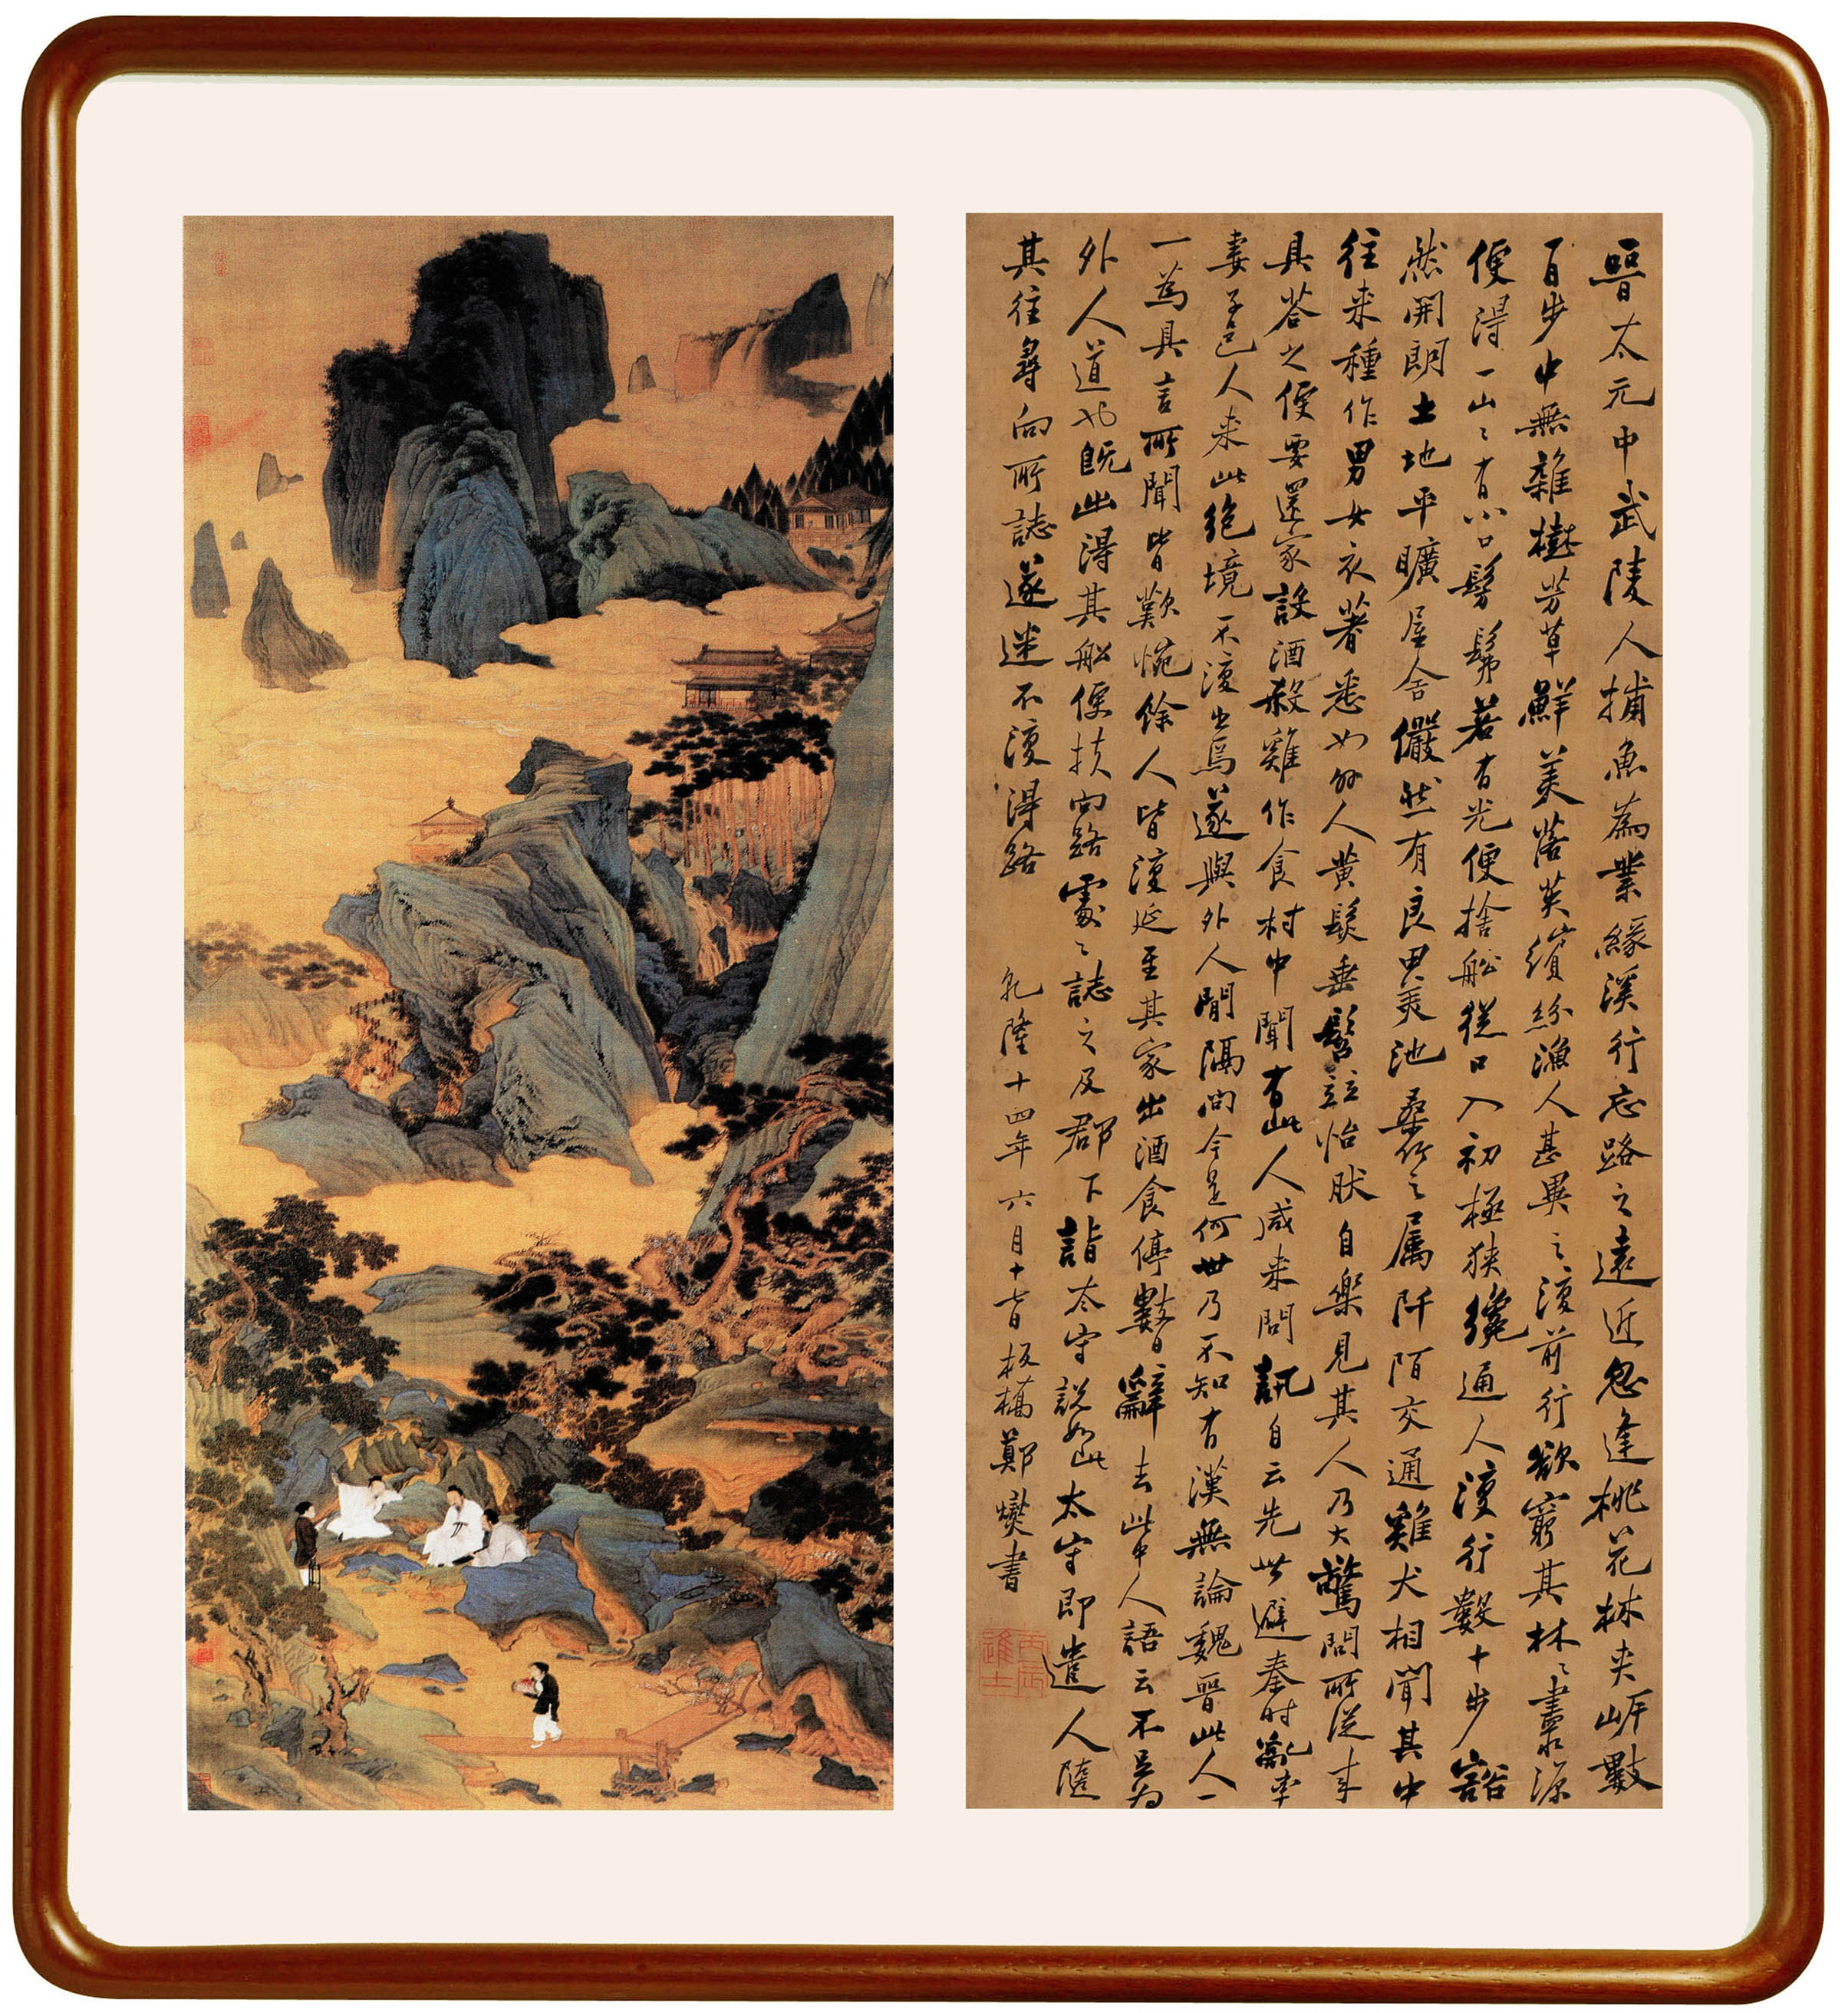 晉太元中武陵人捕魚為業緣溪行忘路之遠近忽逢桃花林夾岸數
百步中無雜樹芳草鮮美落英繽紛漁人甚異之復前行欲窮其林〻盡水源
便得一山〻有小口髣髴若有光便捨船從口入初極狹纔通人復行數十步豁
然開朗土地平曠屋舍儼然有良田美池桑竹之屬阡陌交通雞犬相聞其中
往来種作男女衣著悉如外人黄髮垂髫並怡然自樂見其人乃大驚問所從来
具答之便要還家設酒殺雞作食村中聞有此人咸来問訊自云先世避秦時亂率
妻子邑人来此絶境不復出焉遂與外人間隔問今是何世乃不知有漢無論魏晉此人一
一為具言所聞皆歎惋餘人皆復延至其家出酒食停數日辭去此中人語云不足為
外人道也既出得其船便扶向路處〻誌之及郡下詣太守説如此太守即遣人隨
其往尋向所誌遂迷不復得路 乾隆十四年六月十七日板橋鄭燮書
丙辰進士